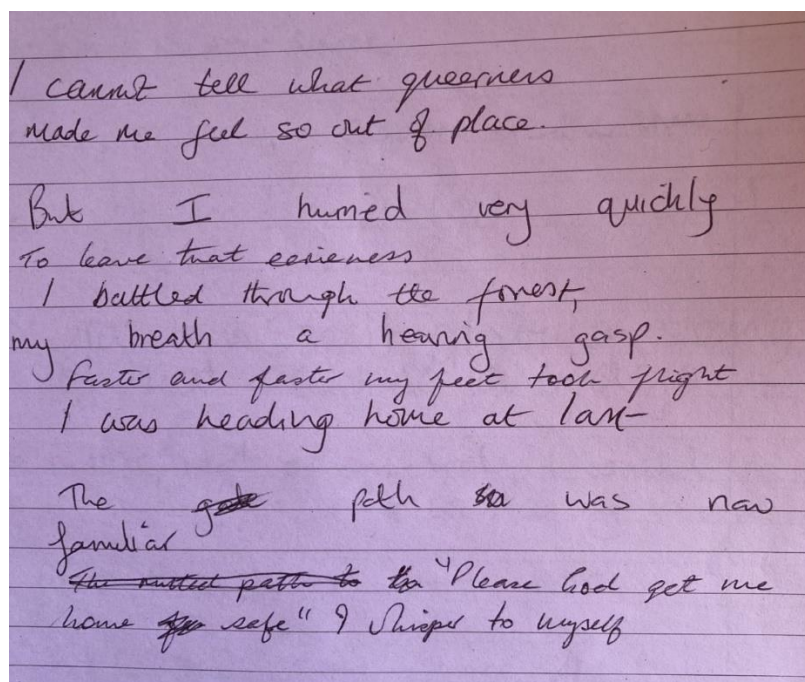 I cannot tell what queerness
made me feel so out of place.
But I hurried very quickly
To leave that eerieness
I battled through the forrest,
my breath a heaving gasp.
Faster and faster my feet took flight
I was heading home at last
The path was now
familiar
The rutted path to "Please God get me
home safe" I whisper to myself